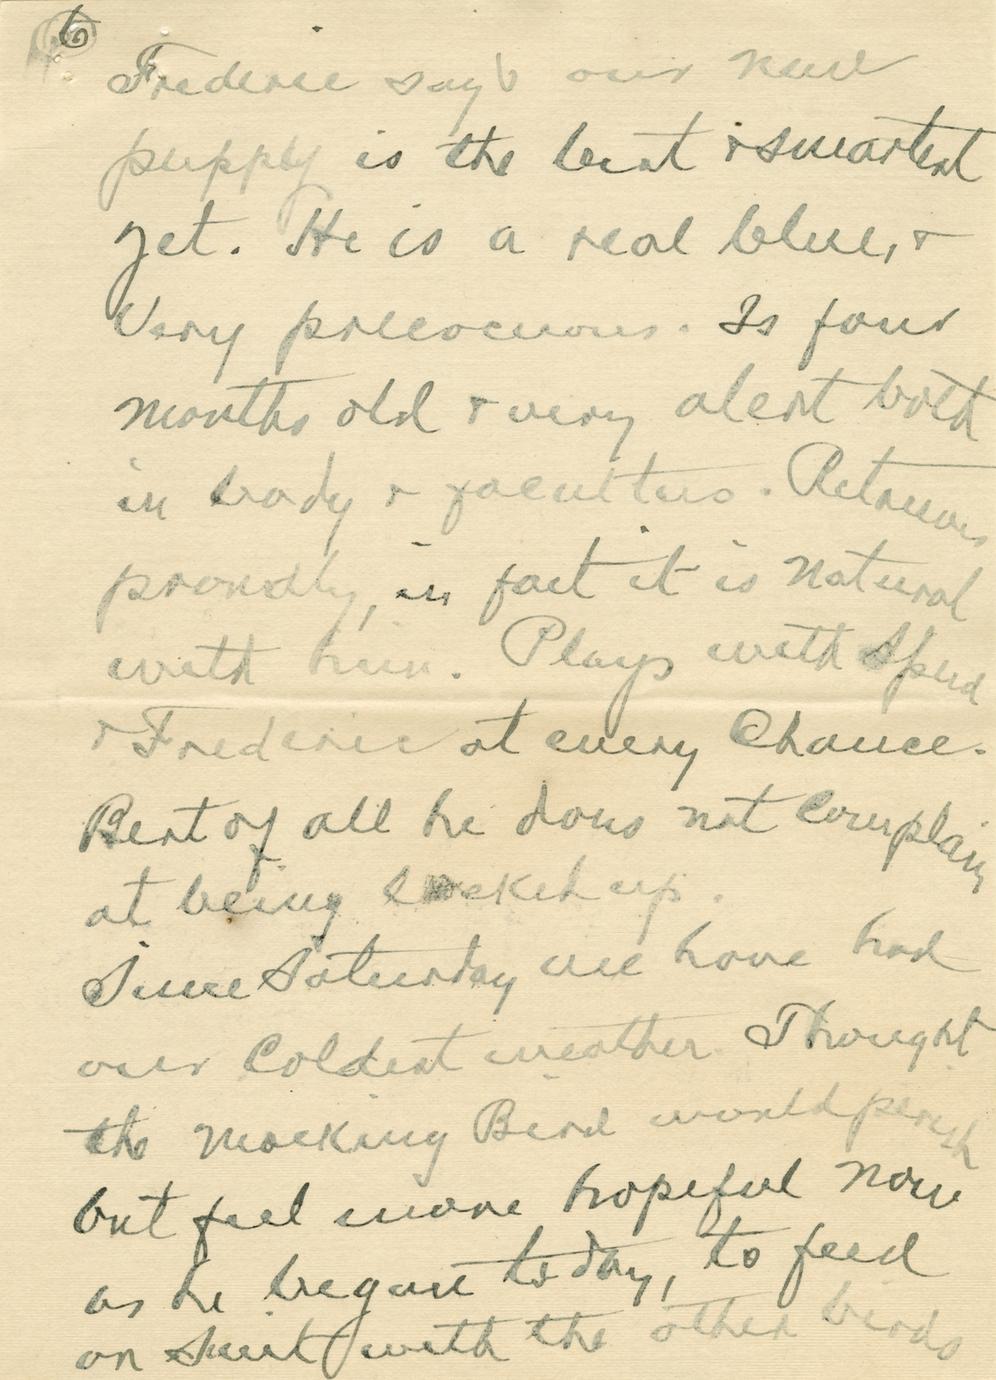 6
Frederic say's our new
puppy is the best & smartest
yet. He is a real blue, &
Very precocious. Is four
months old & very alert both
in body & faculties. Retrieves
proudly, in fact it is natural
with him. Plays with Spud
& Frederic at every Chance.
Best of all he does not Complain
at being locked up.
Since Saturday we have had
our Coldest weather. Thought
the Mocking Bird would perish
but feel more hopeful now
as he began today, to feed
on Suet with the other birds